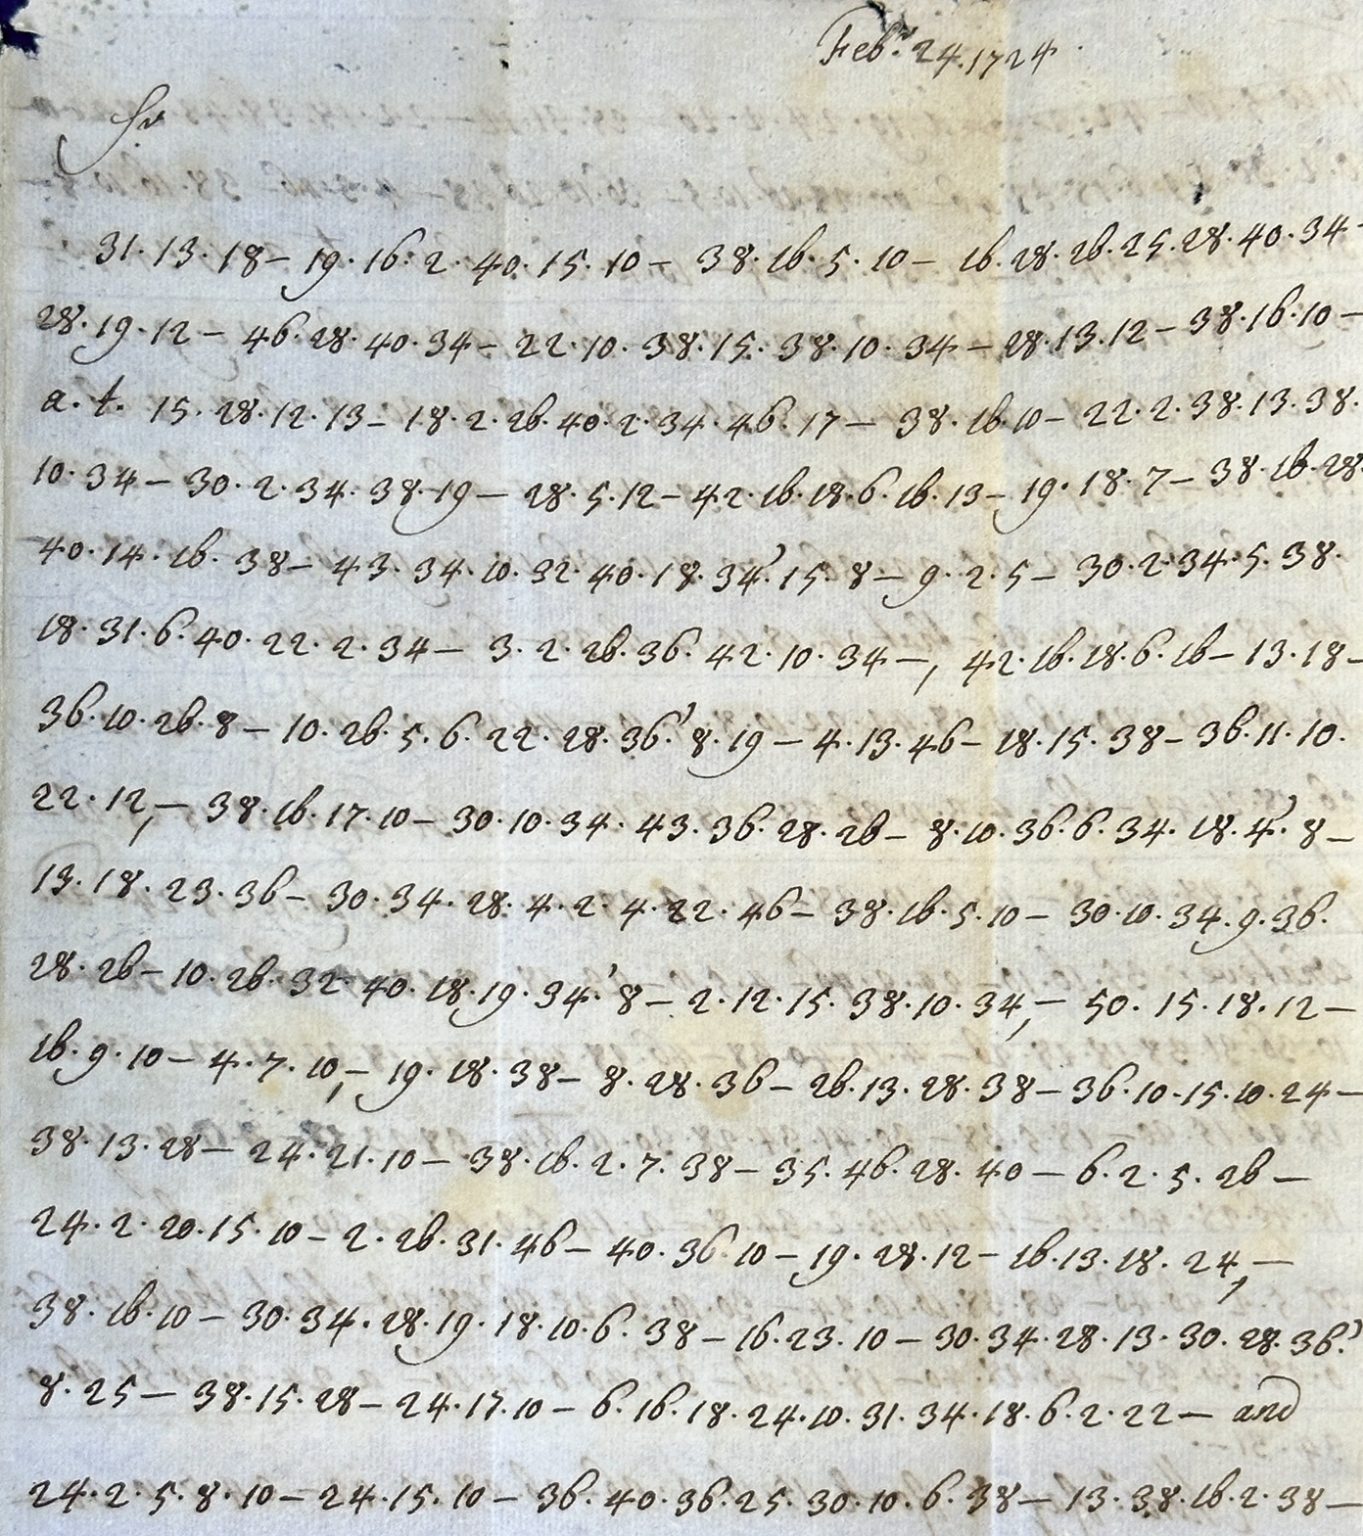 Feb.ʳ 24. 1724
Sr
31. 13. 18 – 19. 16. 2. 40. 15. 10 – 38. 16. 5. 10 – 16. 28. 26. 25. 28. 40. 34 –
28. 19. 12 – 46. 28. 40. 34 – 22. 10. 38. 15. 38. 10. 34 – 28. 13. 12 – 38. 16. 10 –
a. t. 15. 28. 12. 13 – 18. 2. 26. 40. 2. 34. 46. 17 – 38. 16. 10 – 22. 2. 38. 13. 38.
10. 34 – 30. 2. 34. 38. 19 – 28. 5. 12 – 42. 16. 18. 6. 16. 13 – 19. 18. 7 – 38. 16. 28.
40. 14. 16. 38 – 43. 34. 10. 32. 40. 18. 34.' 15. 8 – 9. 2. 5 – 30. 2. 34. 5. 38.
18. 31. 6. 40. 22. 2. 34 – 3. 2. 26. 36. 42. 10. 34 –, 42. 16. 18. 6. 16 – 13. 18 –
36. 10. 26. 8 – 10. 26. 5. 6. 22. 28. 36.' 8. 19 – 4. 13. 46 – 18. 15. 38 – 36. 11. 10.
22. 12, – 38. 16. 17. 10 – 30. 10. 34. 43. 36. 28. 26 – 8. 10. 36. 6. 34. 18. 4.' 8 –
13. 18. 23. 36 – 30. 34. 28. 4. 2. 4. 22. 46 – 38. 16. 5. 10 – 30. 10. 34. 9. 36.
28. 26 – 10. 26. 32. 40. 18. 19. 34.' 8 – 2. 12. 15. 38. 10. 34, – 50. 15. 18. 12 –
16. 9. 10 – 4. 7. 10, – 19. 18. 38 – 8. 28. 36 – 26. 13. 28. 38 – 36. 10. 15. 10. 24 –
38. 13. 28 – 24. 21. 10 – 38. 16. 2. 7. 38 – 35. 46. 28. 40 – 6. 2. 5. 26 –
24. 2. 20. 15. 10 – 2. 26. 31. 46 – 40. 36. 10 – 19. 28. 12 – 16. 13. 18. 24, –
38. 16. 10 – 30. 34. 28. 19. 18. 10. 6. 38 – 16. 23. 10 – 30. 34. 28. 13. 30. 28. 36.'
8. 25 – 38. 15. 28 – 24. 17. 10 – 6. 16. 18. 24. 10. 31. 34. 18. 6. 2. 22 – and
24. 2. 5. 8. 10 – 24. 15. 10 – 36. 40. 36. 25. 30. 10. 6. 38 – 13. 38. 16. 2. 38 –